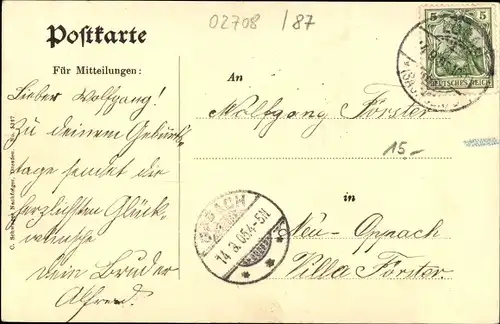 02708 /87
Postkarte
Für Mitteilungen:
Lieber Wolfgang!
Zu deinem Geburts-
tage sendet die
herzlichsten Glück-
wünsche
Dein Bruder
Alfred.
An
Wolfgang Förster
15.-
in
Neu-Oppach
Villa Förster.
5 5
DEUTSCHES REICH
OPPACH
14.8.05.4-5N